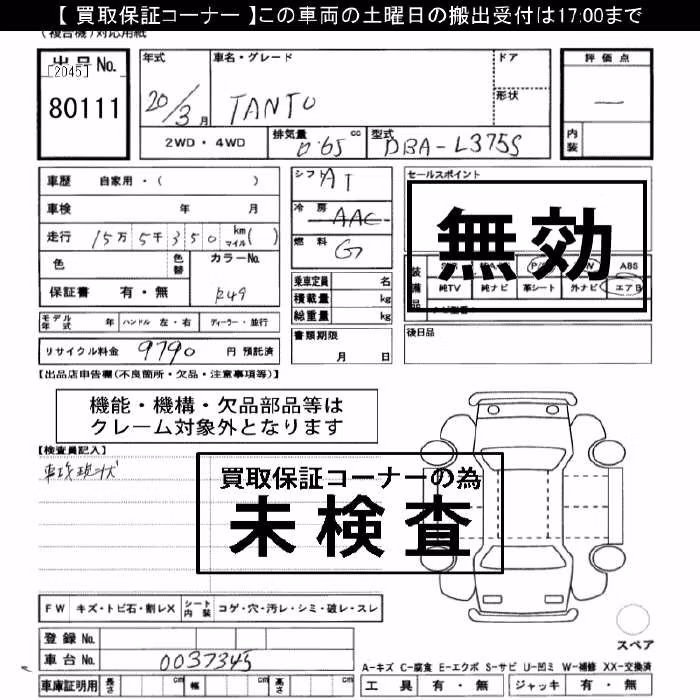 【 買取保証コーナー 】この車両の土曜日の搬出受付は17:00まで
(複合機)対応用紙
出品No.
[2045]
80111
年式
20/3月
車名・グレード
TANTO
ドア
形状
評価点
―
内装
2WD・4WD
排気量 0.65 cc
型式 DBA-L375S
車歴 自家用・( )
車検 年 月
走行 15万5千350 km マイル( )
色
色替
カラーNo.
R49
保証書 有・無
シフト AT
冷房 AAC
燃料 G
乗車定員 名
積載量 kg
総重量 kg
セールスポイント
無効
装備品
P/S
ABS
純TV 純ナビ 革シート 外ナビ エアB
モデル年式 年 ハンドル 左・右 ディーラー・並行
リサイクル料金 9790 円 預託済
書類期限
月 日
後日品
【出品店申告欄(不良箇所・欠品・注意事項等)】
機能・機構・欠品部品等は
クレーム対象外となります
【検査員記入】
車検現状
買取保証コーナーの為
未検査
FW キズ・トビ石・割レX シート内装 コゲ・穴・汚レ・シミ・破レ・スレ
登録No.
車台No. 0037345
スペア
A-キズ C-腐食 E-エクボ S-サビ U-凹ミ W-補修 XX-交換済
車庫証明用 長さ cm 幅 cm 高さ cm
工具 有・無 ジャッキ 有・無